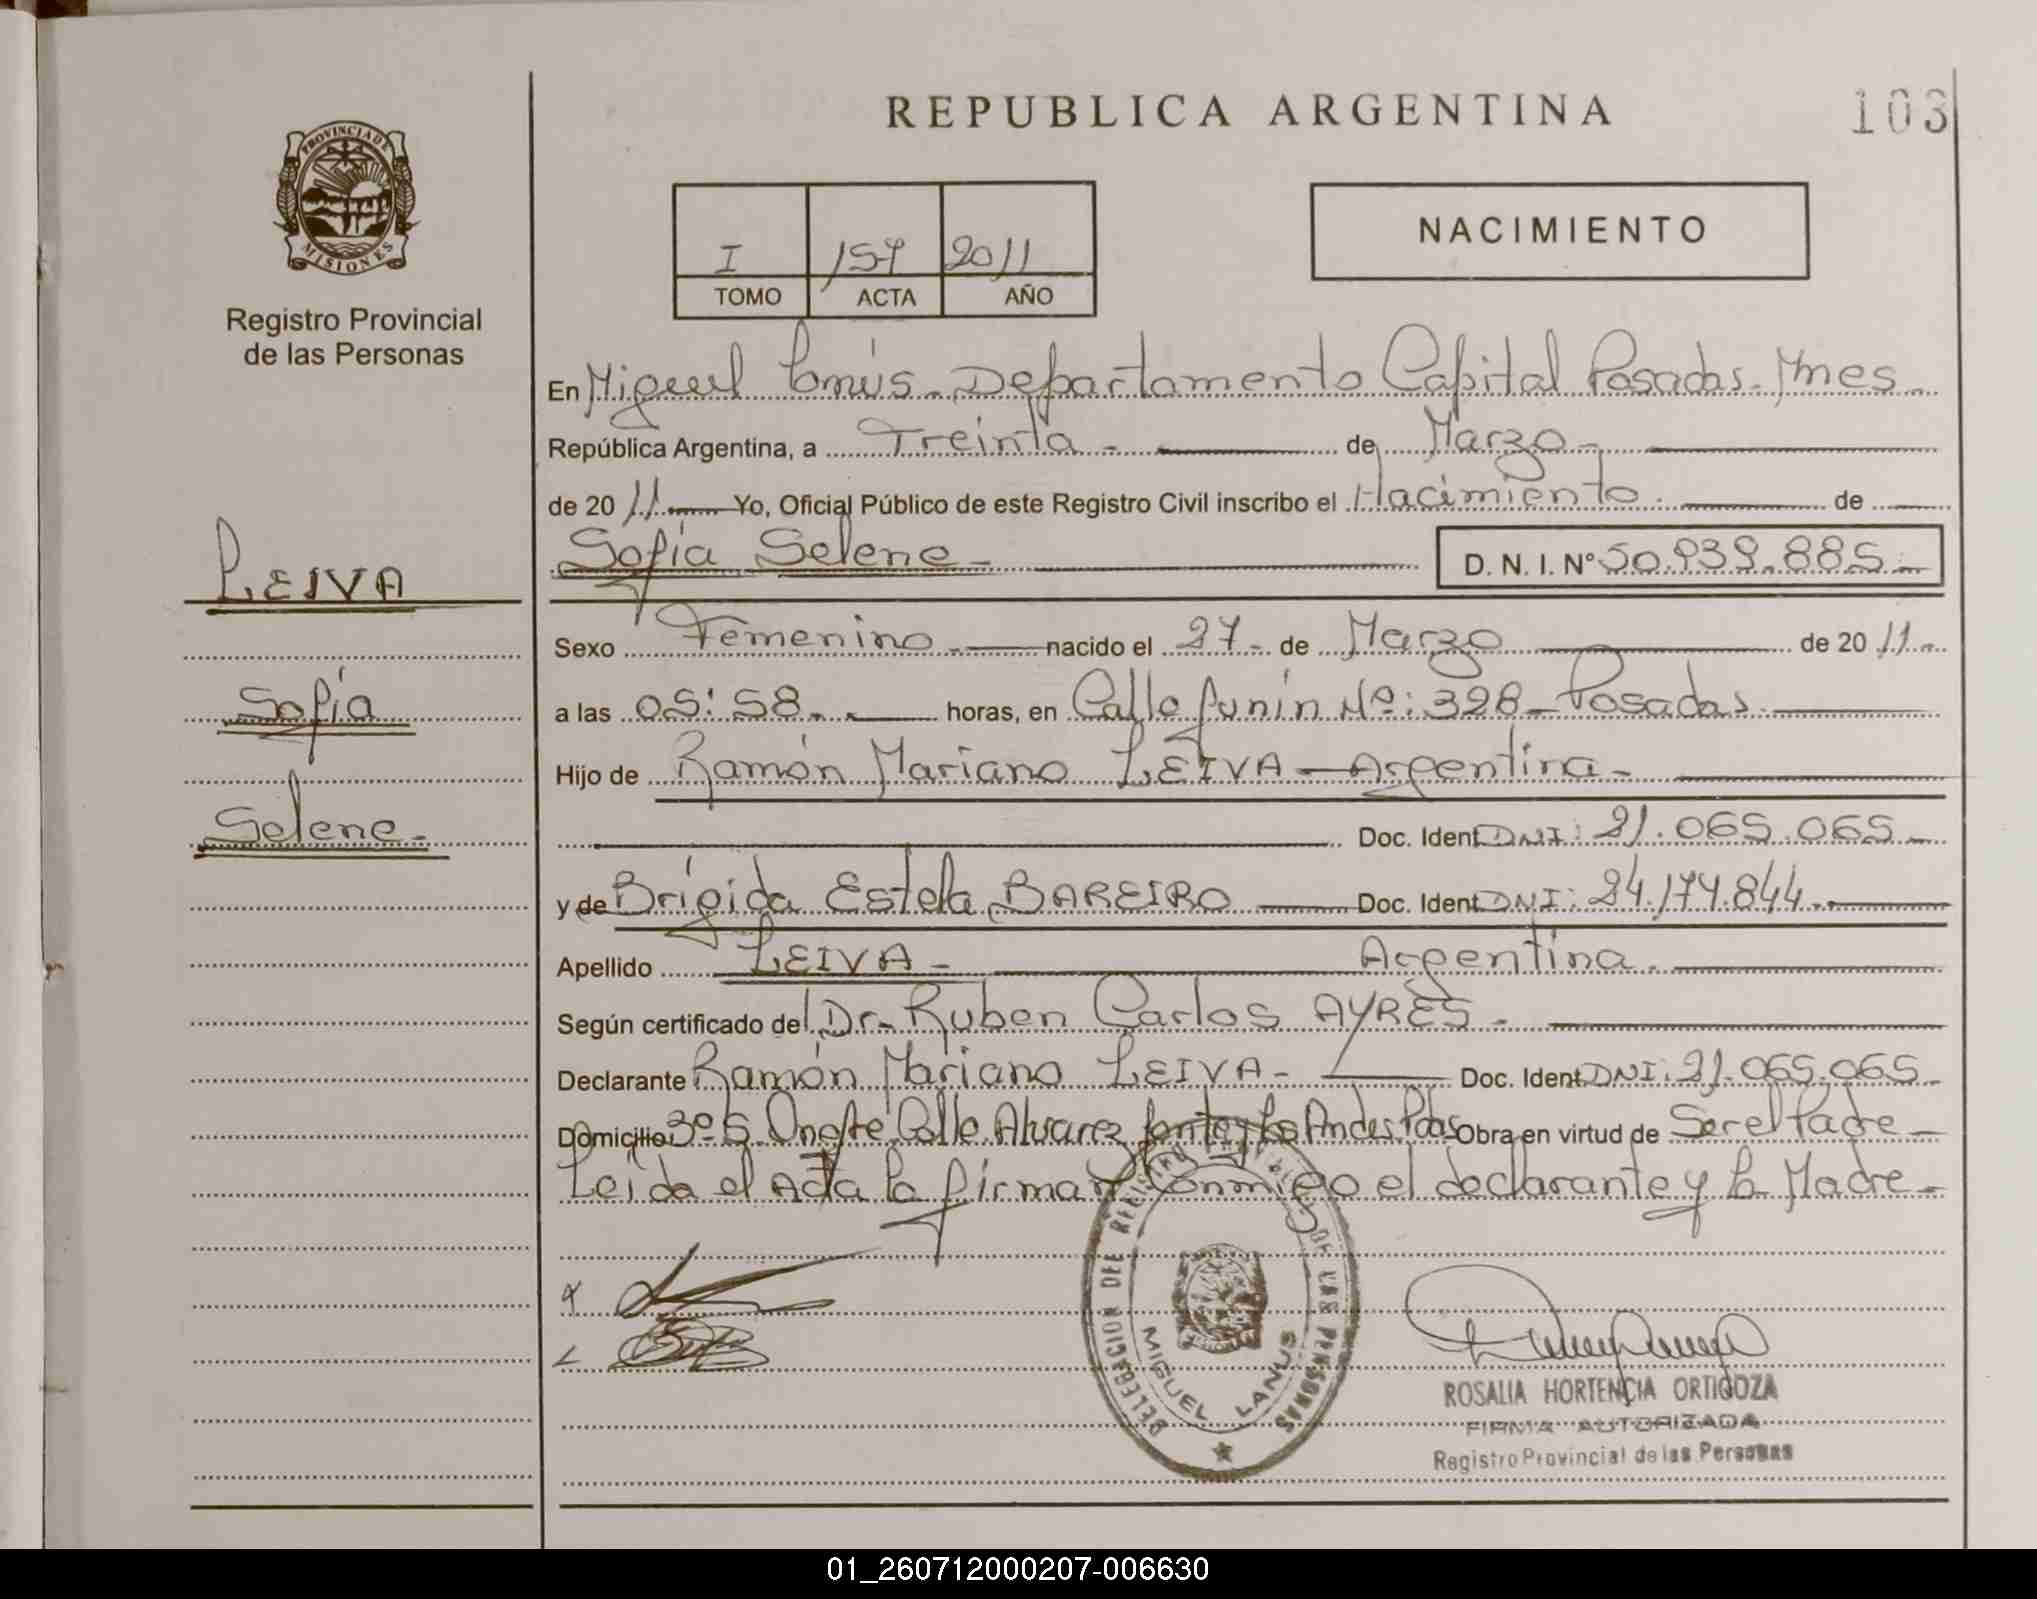 REPUBLICA ARGENTINA
103
PROVINCIA DE MISIONES
Registro Provincial
de las Personas
I 157 2011
TOMO ACTA AÑO
NACIMIENTO
En Miguel Lanús - Departamento Capital Posadas - Mnes
República Argentina, a Treinta - de Marzo -
de 2011 Yo, Oficial Público de este Registro Civil inscribo el Nacimiento. de
Sofía Selene -
D. N. I. Nº 50.939.885 -
LEIVA
Sofía
Selene -
Sexo Femenino - nacido el 27 - de Marzo de 2011 -
a las 05:58 - horas, en Calle Junín Nº: 328 - Posadas
Hijo de Ramón Mariano LEIVA - Argentina -
Doc. Ident. DNI: 21.065.065 -
y de Brígida Estela BAREIRO Doc. Ident. DNI: 24.174.844 -
Apellido LEIVA - Argentina -
Según certificado del Dr. Ruben Carlos AYRES -
Declarante Ramón Mariano LEIVA - Doc. Ident. DNI: 21.065.065 -
Domicilio Calle Alvarez y Los Andes Pdas Obra en virtud de Ser el Padre -
Leida el Acta la firman Conmigo el declarante y la Madre -
DELEGACION DEL REGISTRO PROVINCIAL DE LAS PERSONAS
MIGUEL LANUS
ROSALIA HORTENCIA ORTIGOZA
FIRMA AUTORIZADA
Registro Provincial de las Personas
01_260712000207-006630